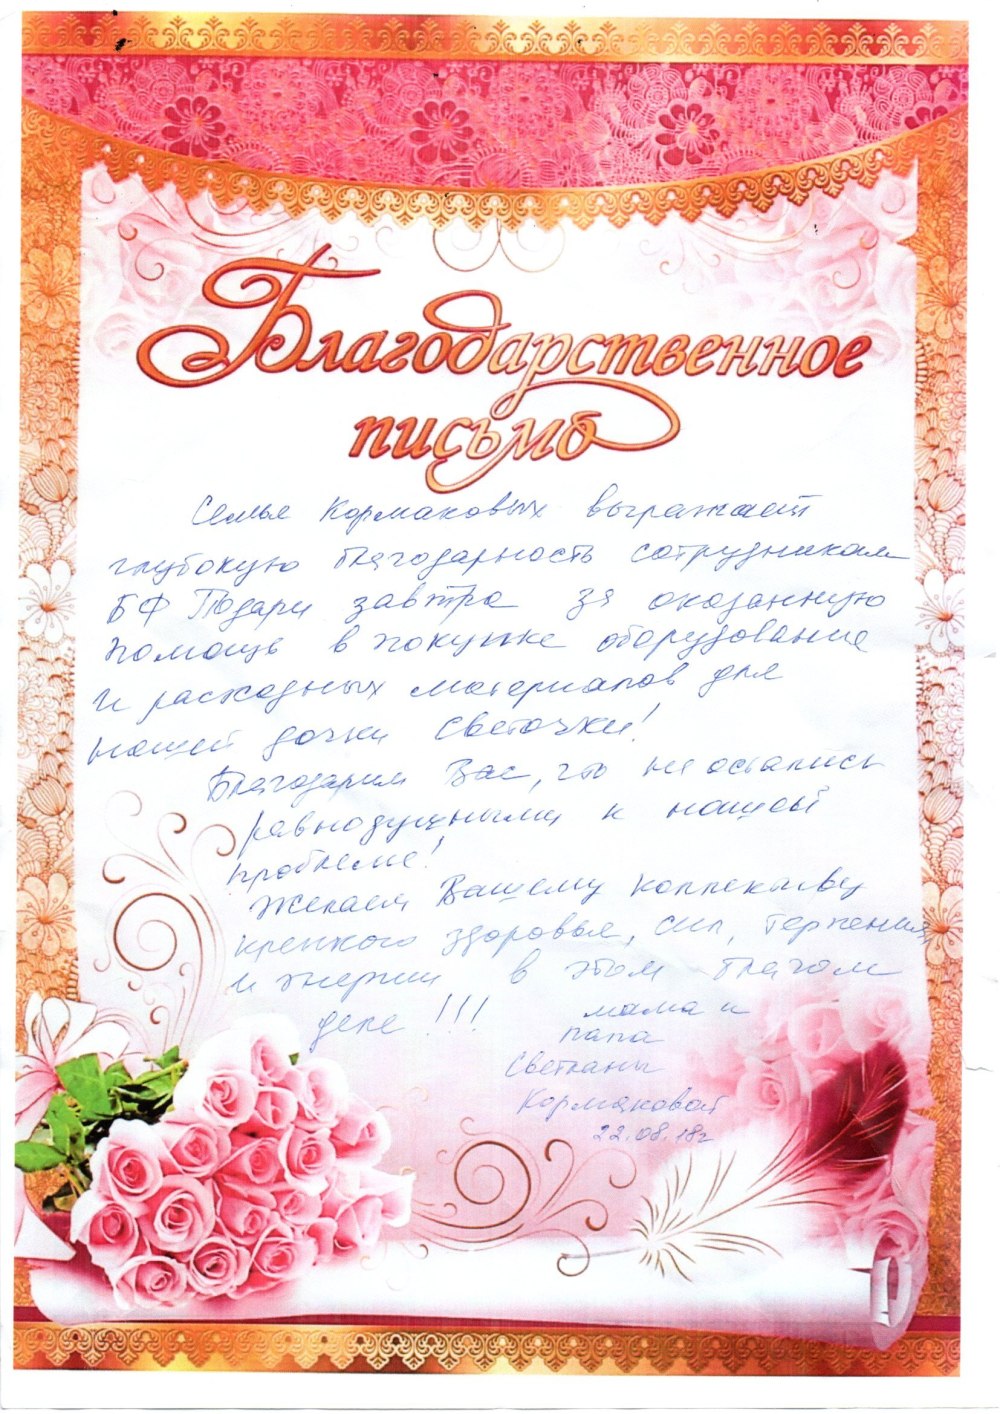 Благодарственное
письмо
Семья Кормаковых выражает
глубокую благодарность сотрудникам
БФ Подари завтра за оказанную
помощь в покупке оборудования
и расходных материалов для
нашей дочки Светочки!
Благодарим Вас, что не остались
равнодушными к нашей
проблеме!
Желаем Вашему коллективу
крепкого здоровья, сил, терпения,
и энергии в этом благом
деле!!!
мама и
папа
Светланы
Кормаковой
22.08.18г